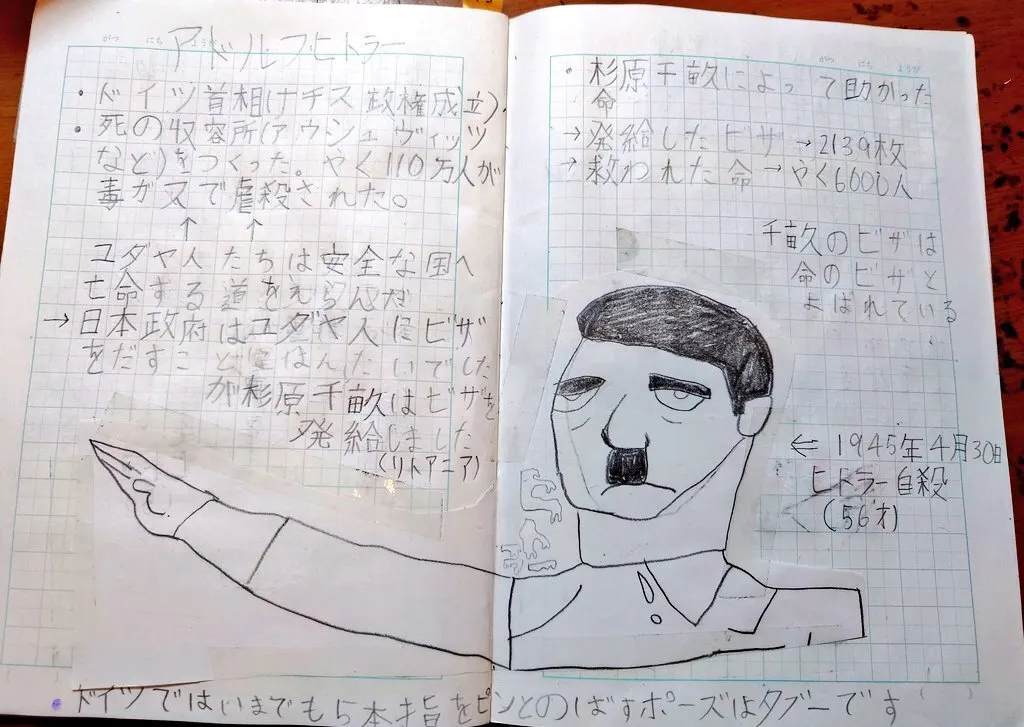 がつ にち ようび
アドルフヒトラー
・ドイツ首相(ナチス政権成立)、
・死の収容所(アウシュヴィッツ
など)をつくった。やく110万人が
毒ガスで虐殺された。
↑ ↑
ユダヤ人たちは安全な国へ
亡命する道をえらんだ
→日本政府はユダヤ人にビザ
をだすことははんたいでした
が杉原千畝はビザを
発給しました
(リトアニア)
がつ にち ようび
・杉原千畝によって助かった
命
→発給したビザ→2139枚
→救われた命→やく6000人
千畝のビザは
命のビザと
よばれている
⇐1945年4月30日
ヒトラー自殺
(56才)
・ドイツではいまでも5本指をピンとのばすポーズはタブーです